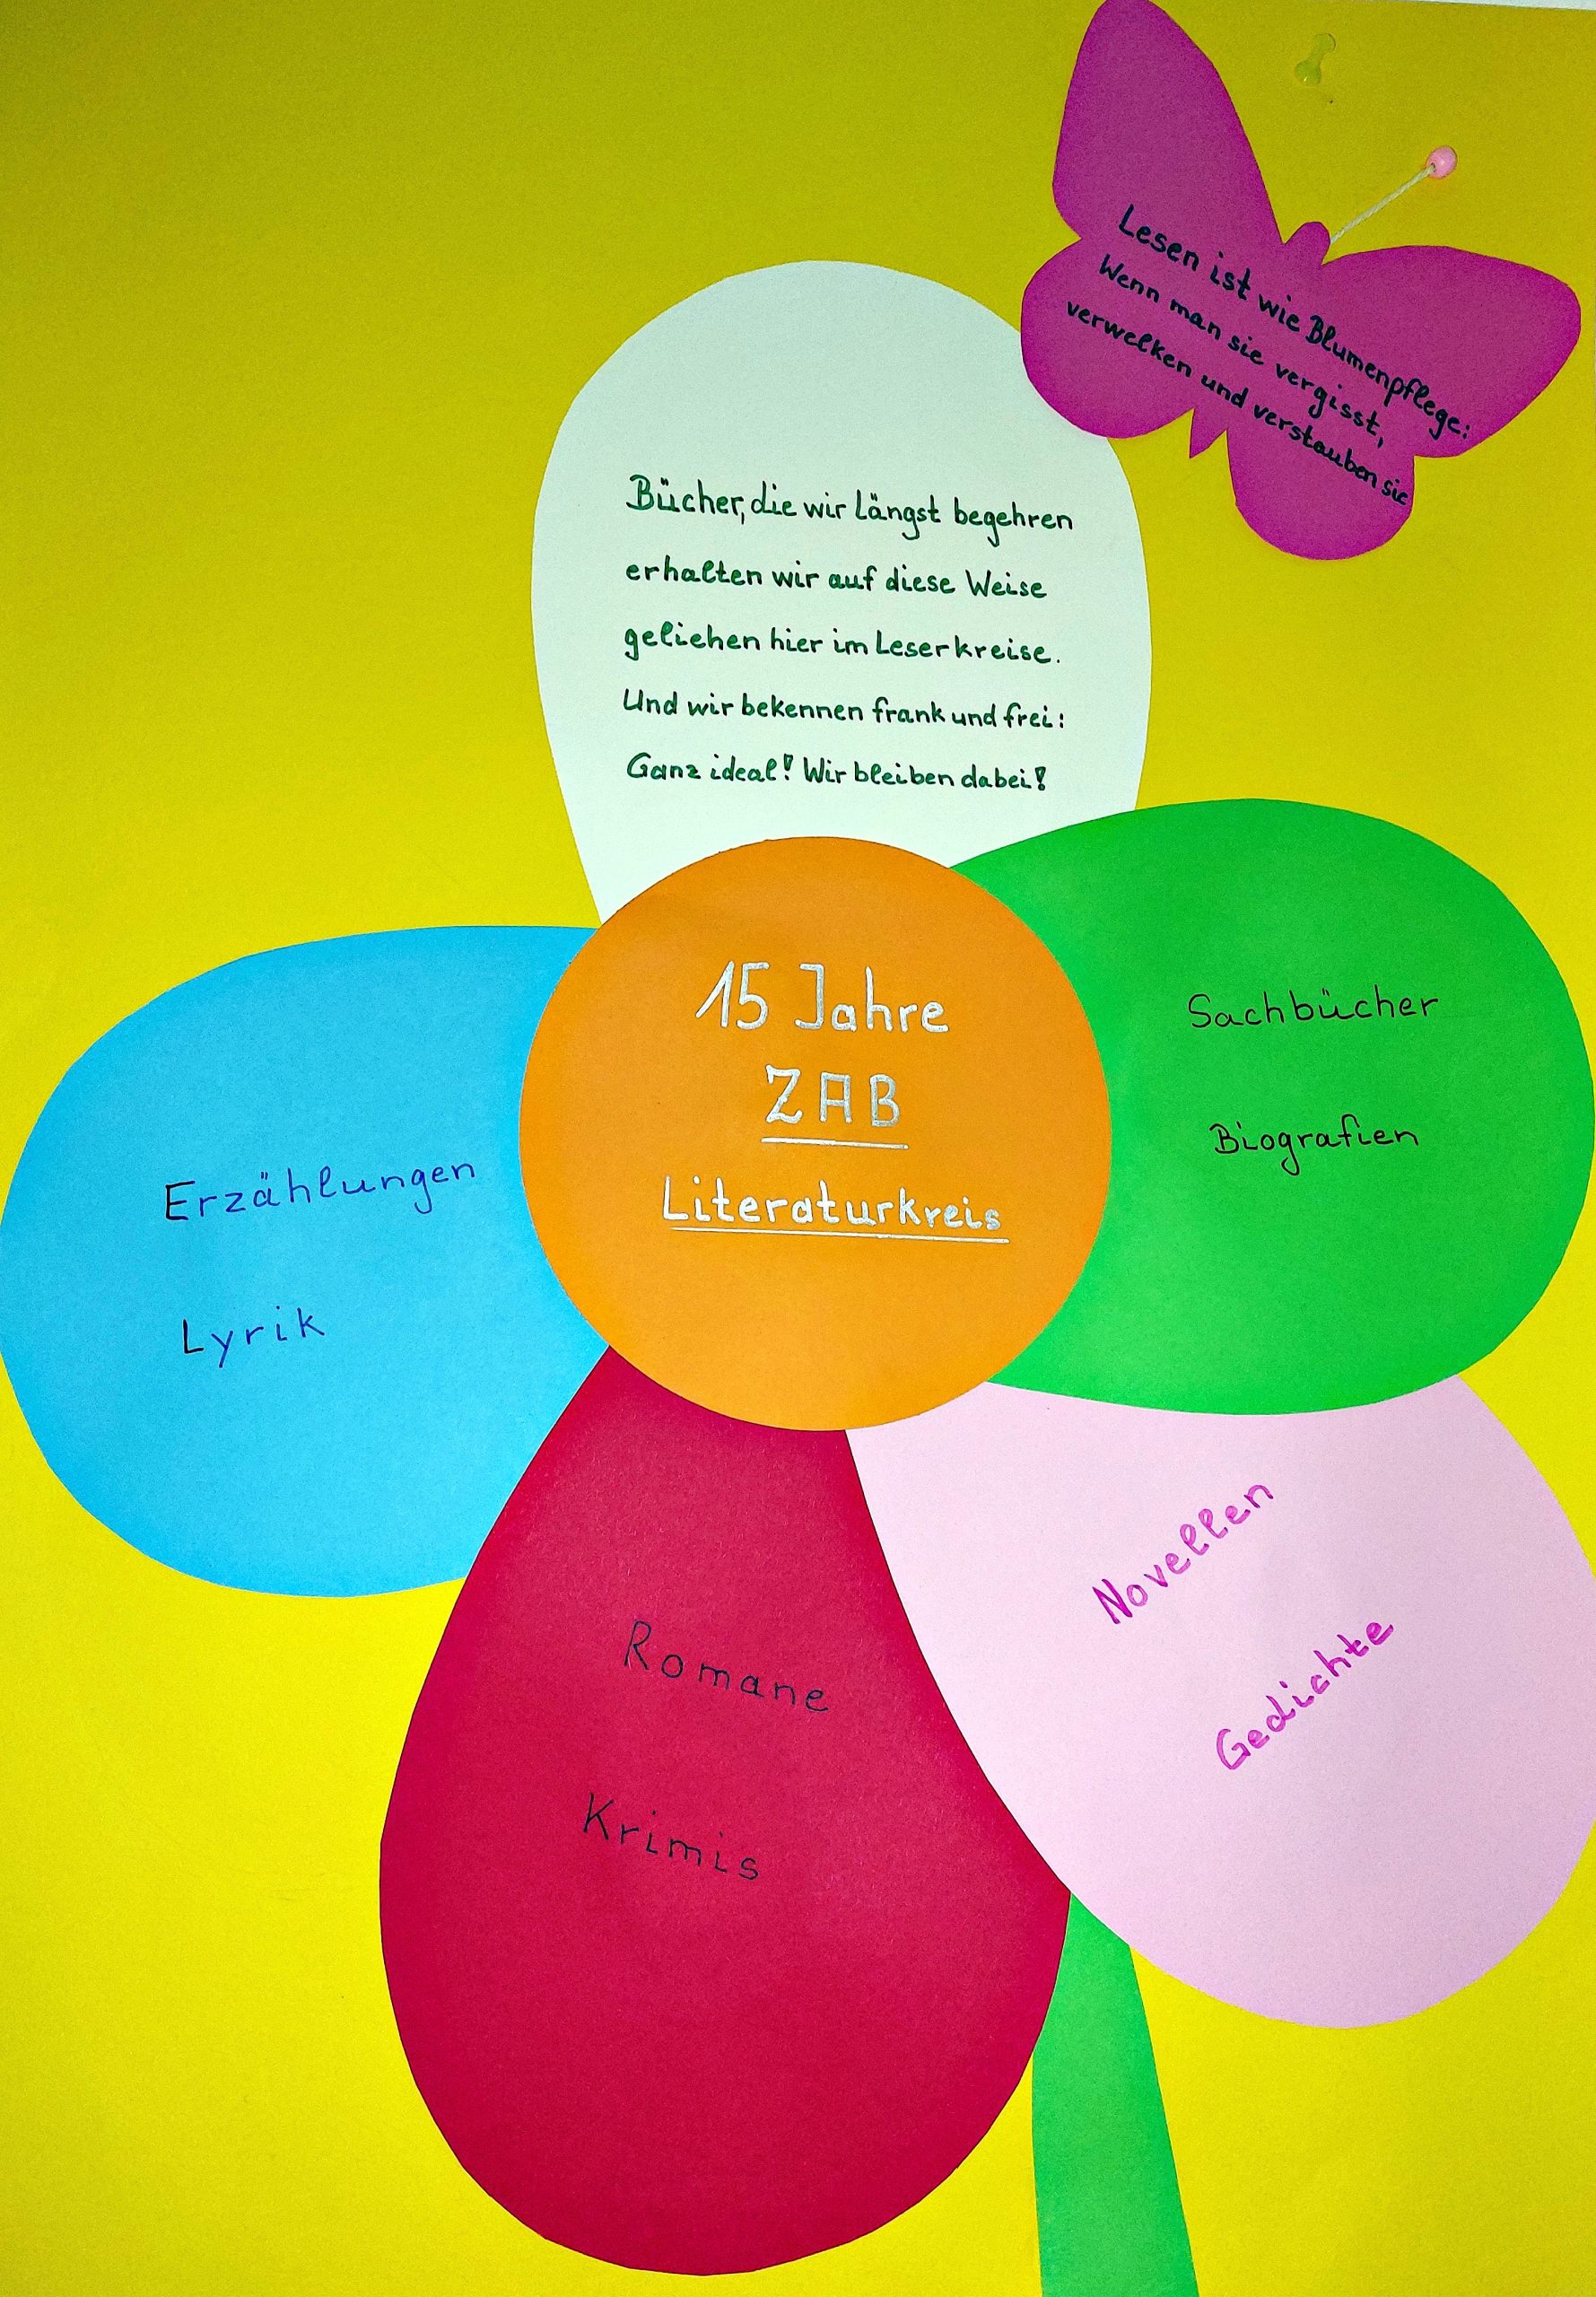 Lesen ist wie Blumenpflege:
Wenn man sie vergisst,
verwelken und verstauben sie
Bücher, die wir längst begehren
erhalten wir auf diese Weise
geliehen hier im Leserkreise.
Und wir bekennen frank und frei:
Ganz ideal! Wir bleiben dabei!
15 Jahre
ZAB
Literaturkreis
Sachbücher
Biografien
Erzählungen
Lyrik
Novellen
Gedichte
Romane
Krimis